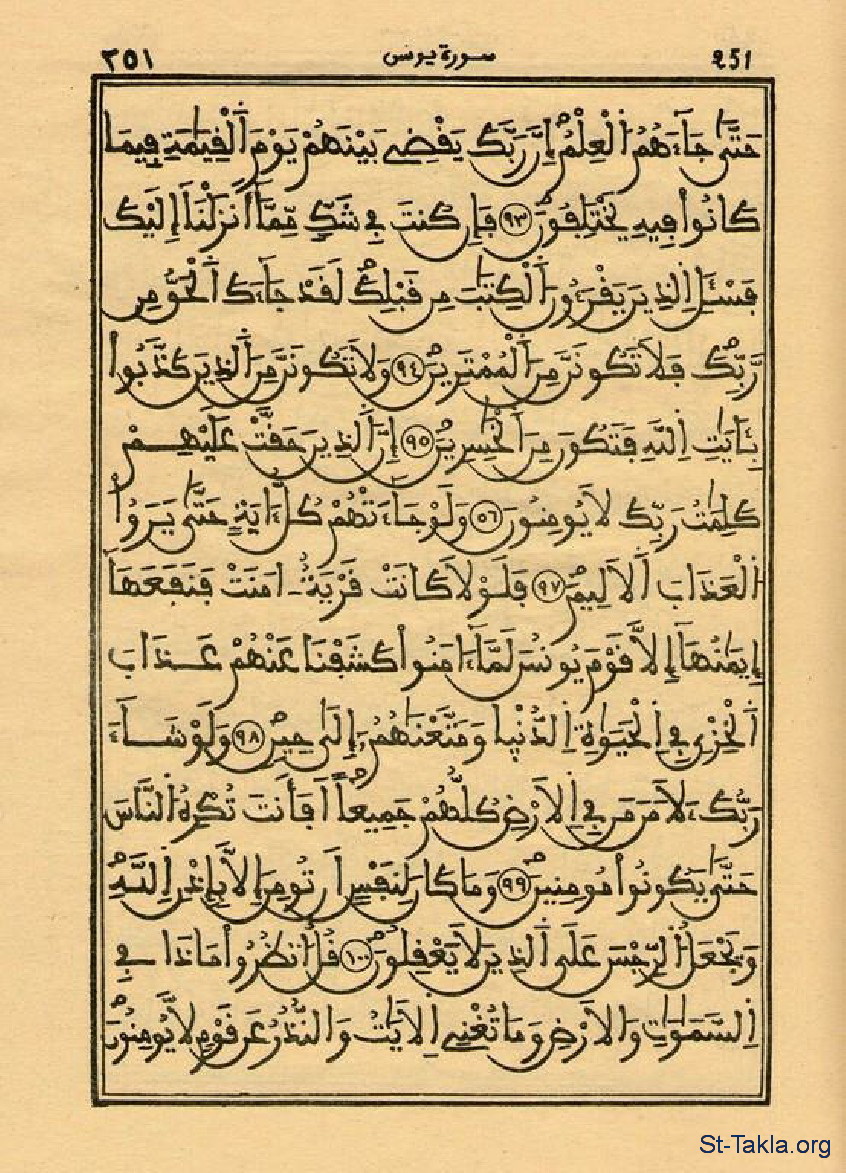 ٢٥١ سورة يونس 251
حَتَّىٰ جَآءَهُمُ اُلْعِلْمُۖ إِنَّ رَبَّكَ يَقْضِے بَيْنَهُمْ يَوْمَ اَلْقِيَٰمَةِ فِيمَا
كَانُوا۟ فِيهِ يَخْتَلِفُونَۖ ٩٣ فَإِن كُنتَ فِے شَكٍّ مِّمَّآ أَنزَلْنَآ إِلَيْكَ
فَسْـَٔلِ اِلذِينَ يَقْرَءُونَ اَلْكِتَٰبَ مِن قَبْلِكَۖ لَقَدْ جَآءَكَ اَلْحَقُّ مِن
رَّبِّكَۖ فَلَا تَكُونَنَّ مِنَ اَلْمُمْتَرِينَۖ ٩٤ وَلَا تَكُونَنَّ مِنَ اَلذِينَ كَذَّبُوا۟
بِـَٔايَٰتِ اِللَّهِ فَتَكُونَ مِنَ اَلْخَٰسِرِينَۖ ٩٥ إِنَّ اَلذِينَ حَقَّتْ عَلَيْهِمْ
كَلِمَٰتُ رَبِّكَ لَا يُومِنُونَ ٥٦ وَلَوْ جَآءَتْهُمْ كُلُّ ءَايَةٍ حَتَّىٰ يَرَوُا۟
اُلْعَذَابَ اَلَالِيمَۖ ٩٧ فَلَوْلَا كَانَتْ قَرْيَةٌ ـ امَنَتْ فَنَفَعَهَآ
إِيمَٰنُهَآ إِلَّا قَوْمَ يُونُسَ لَمَّآ ءَامَنُوا۟ كَشَفْنَا عَنْهُمْ عَذَابَ
اَلْخِزْيِ فِے اِلْحَيَوٰةِ اِلدُّنْي۪ا وَمَتَّعْنَٰهُمُۥٓ إِلَىٰ حِينٍۖ ٩٨ وَلَوْ شَآءَ
رَبُّكَ ءَلَامَنَ مَن فِے اِلَارْضِ كُلُّهُمْ جَمِيعاًۖ اَفَأَنتَ تُكْرِهُ اُلنَّاسَ
حَتَّىٰ يَكُونُوا۟ مُومِنِينَۖ ٩٩ وَمَا كَانَ لِنَفْسٍ اَن تُومِنَ إِلَّا بِإِذْنِ اِللَّهِۖ
وَيَجْعَلُ اُلرِّجْسَ عَلَى اَلذِينَ لَا يَعْقِلُونَۖ ١٠٠ قُلُ اُنظُرُوا۟ مَاذَا فِے
اِلسَّمَٰوَٰتِ وَالَارْضِ وَمَا تُغْنِے اِلَايَٰتُ وَالنُّذُرُ عَن قَوْمٍ لَّا يُومِنُونَۖ
St-Takla.org